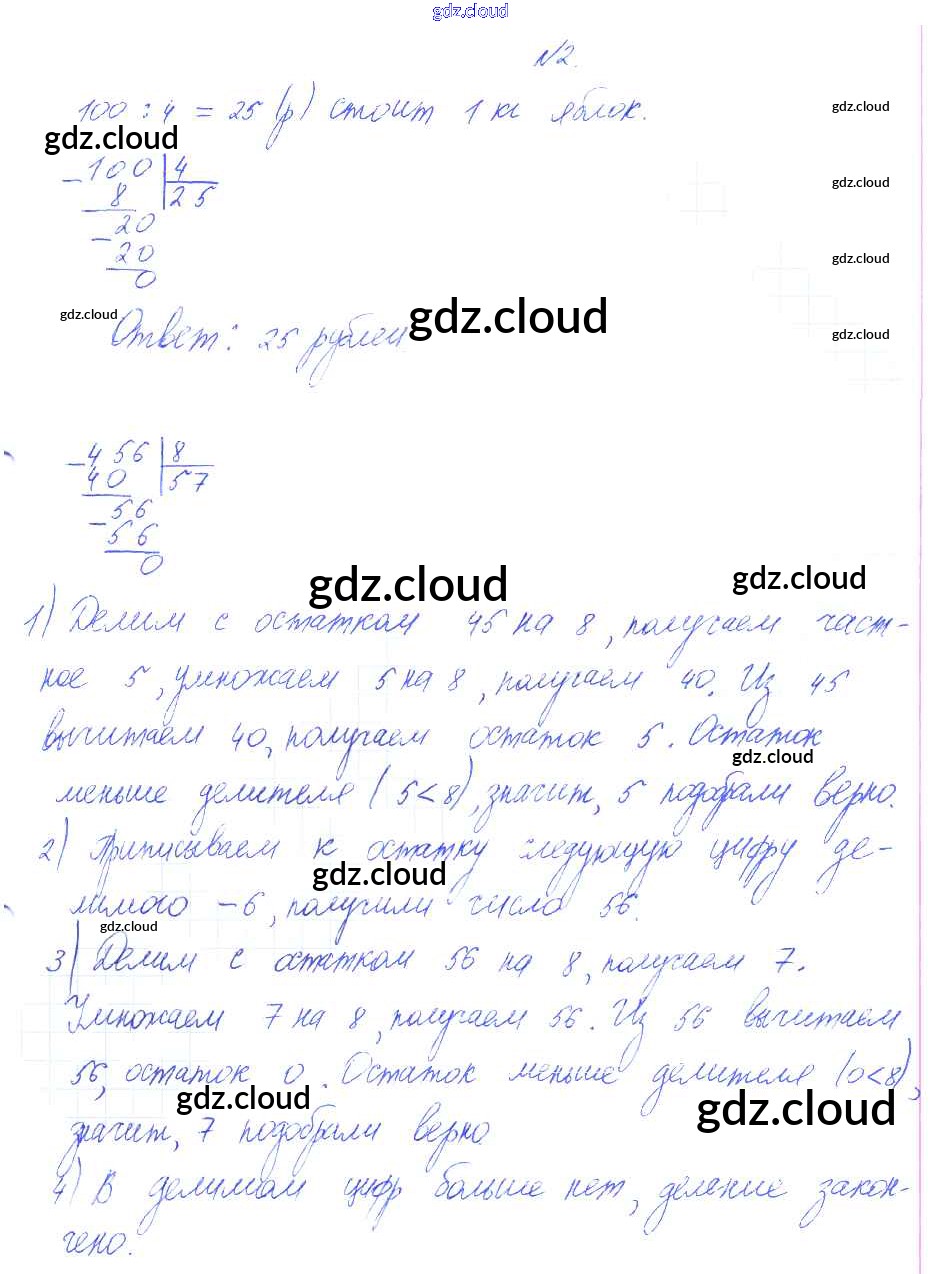 gdz.cloud
№2.
100 : 4 = 25 (р) стоит 1 кг яблок.
gdz.cloud
gdz.cloud
100 | 4
gdz.cloud
8 | 25
20
20
gdz.cloud
0
gdz.cloud
gdz.cloud
Ответ: 25 рублей
gdz.cloud
456 | 8
40 | 57
56
56
0
gdz.cloud
gdz.cloud
1) Делим с остатком 45 на 8, получаем част-
ное 5, умножаем 5 на 8, получаем 40. Из 45
вычитаем 40, получаем остаток 5. Остаток
gdz.cloud
меньше делителя (5<8), значит, 5 подобрали верно.
2) Приписываем к остатку следующую цифру де-
gdz.cloud
лимого – 6, получили число 56.
gdz.cloud
3) Делим с остатком 56 на 8, получаем 7.
Умножаем 7 на 8, получаем 56. Из 56 вычитаем
56, остаток 0. Остаток меньше делителя (0<8),
gdz.cloud
gdz.cloud
значит, 7 подобрали верно
4) В делимом цифр больше нет, деление закон-
чено.